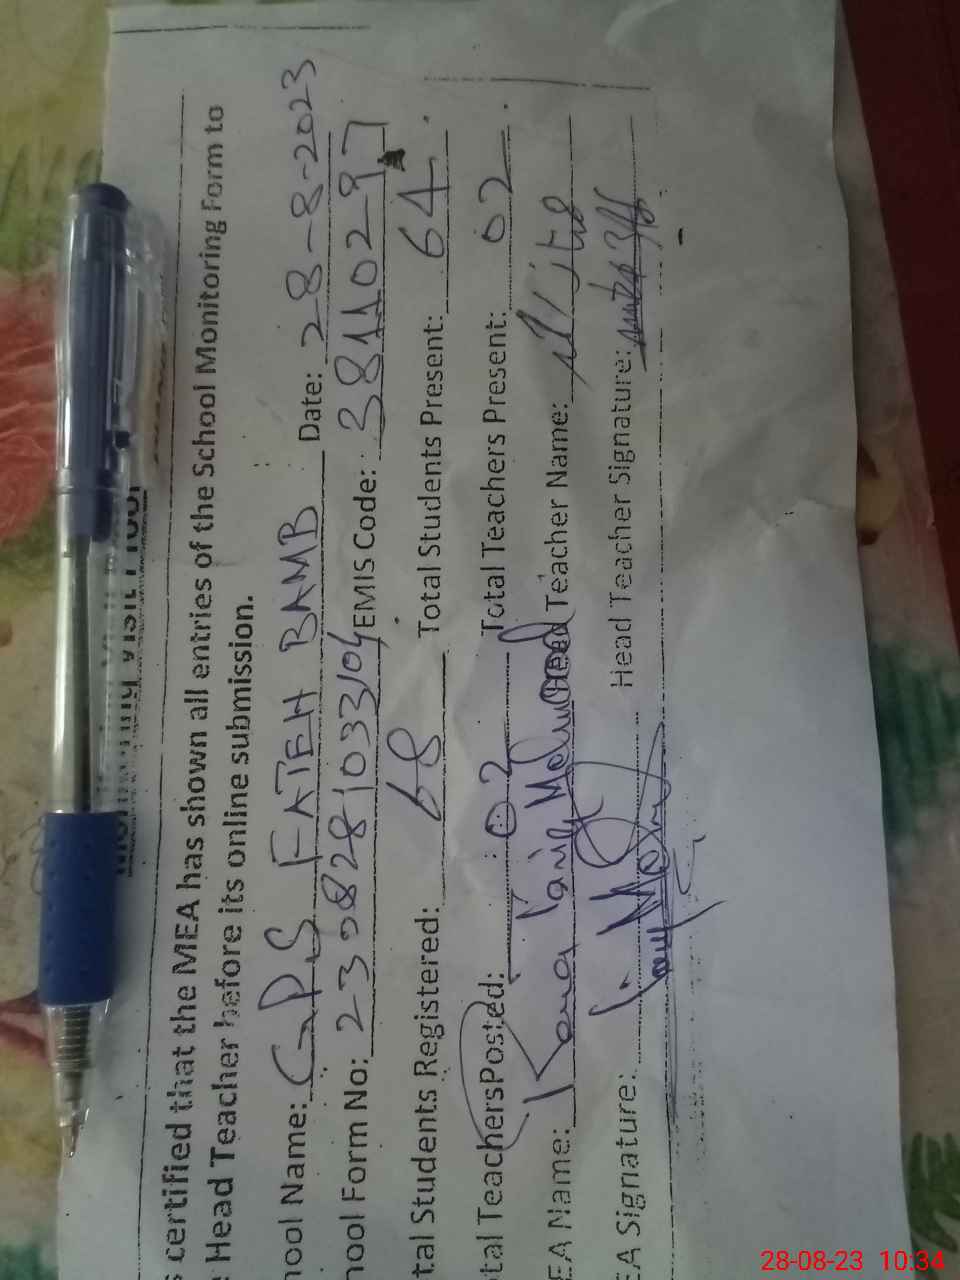 Monitoring Visit Tool
certified that the MEA has shown all entries of the School Monitoring Form to
Head Teacher before its online submission.
hool Name: GPS FATEH BAMB Date: 28-8-2023
hool Form No: 230828103310 EMIS Code: 38110297
tal Students Registered: 68 Total Students Present: 64
tal Teachers Posted: 02 Total Teachers Present: 02
EA Name: Rana Tariq Mehmood Head Teacher Name:
EA Signature: Head Teacher Signature:
28-08-23 10:34